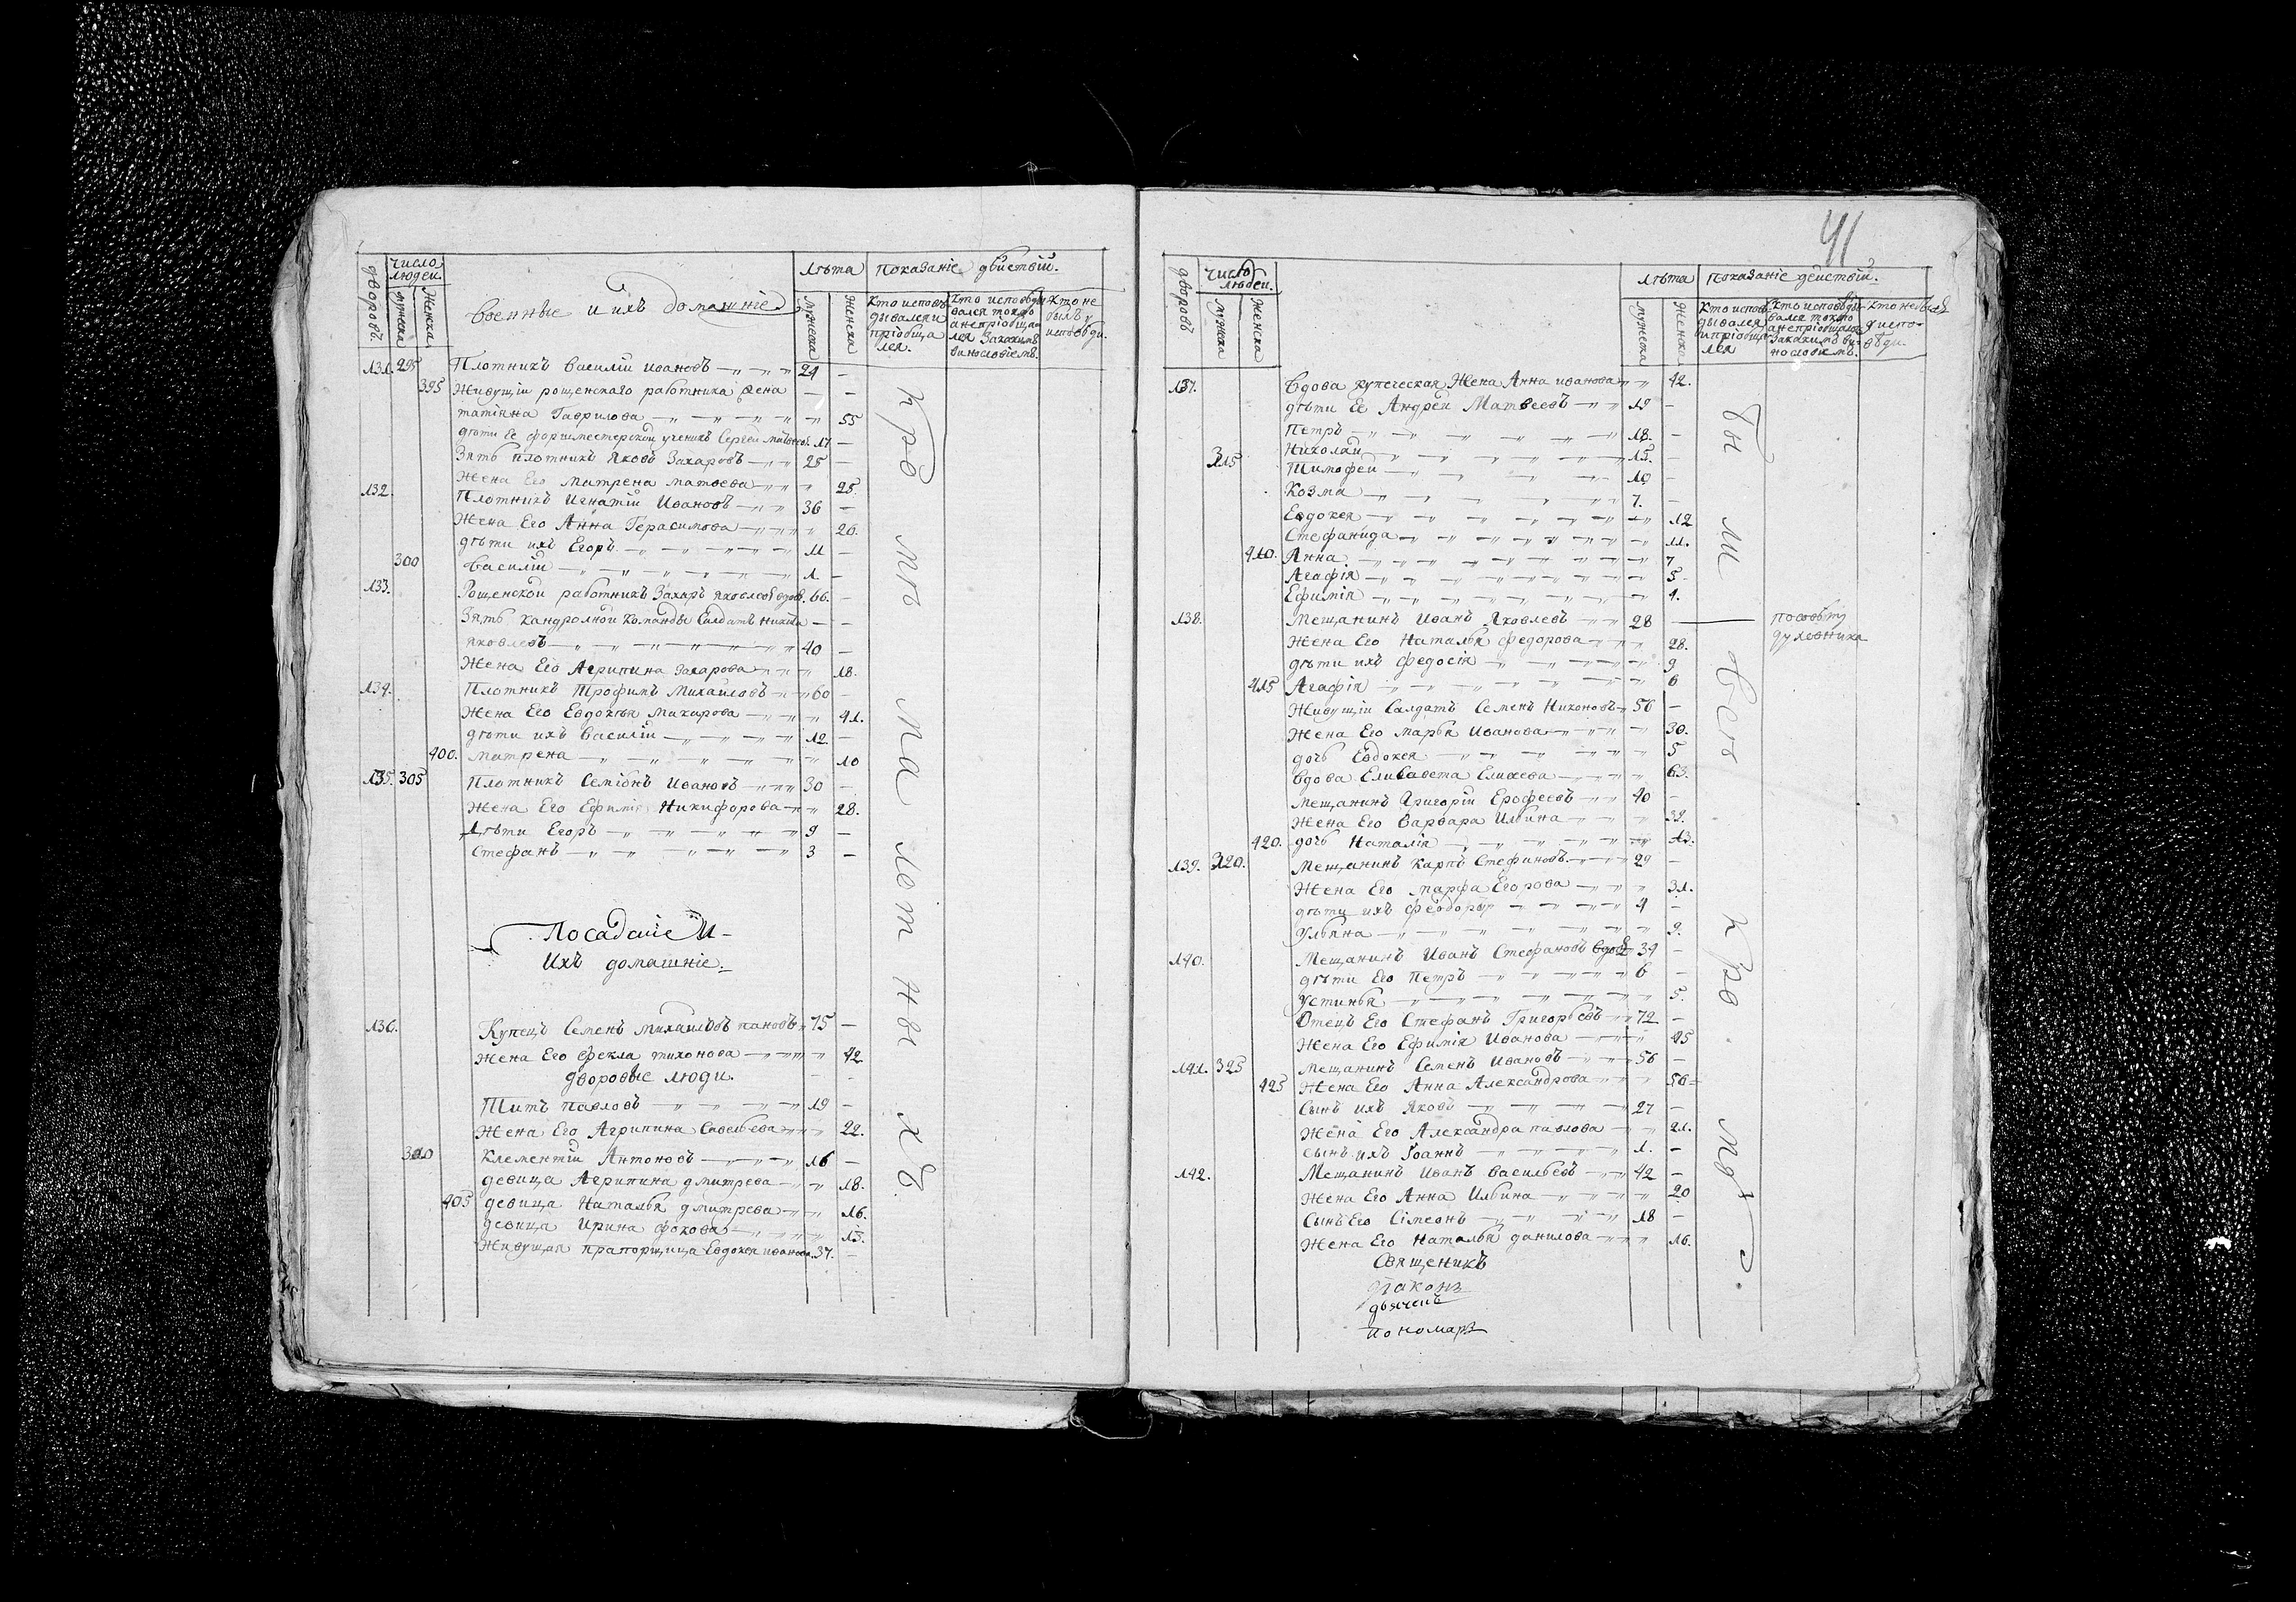 дворовъ
число людей.
мужеска
Женска
Военные и ихъ домашніе
лѣта
мужеска
Женска
показаніе дѣйствій.
Кто исповѣдывалея и пріобщалея.
Кто исповѣдывался токмо а непріобщался За какимъ винословіемъ.
Кто не былъ у исповѣди.
131. 295 Плотникъ Василій Ивановъ 24 —
395 Живущій рощенскаго работника жена — —
Гаврилова 55
дѣти Ее ученикъ Сергей 17 —
Зять плотникъ Яковъ Захаровъ 25 —
Жена Его Матрена матвеева 25.
132. Плотникъ Игнатій Ивановъ 36 —
Жена Его Анна Герасимова 26.
дѣти ихъ Егоръ 11 —
300 Василій 1 —
133. Рощенской работникъ Захаръ Яковлевъ вдовъ. 66. —
Зять команды Салдатъ Никита — —
Яковлевъ 40 —
Жена Его Агрипина Захарова 18.
134. Плотникъ Трофимъ Михайловъ 60 —
Жена Его Евдокѣя Макарова 41.
дѣти ихъ Василій 12. —
400. Матрена 10
135. 305 Плотникъ Семіонъ Ивановъ 30 —
Жена Его Ефимія Никифорова 28.
Дѣти Егоръ 9 —
Стефанъ 3 —
Посадскіе И
Ихъ домашніе.
136. Купецъ Семенъ Михайловъ пановъ 75 —
Жена Его Фекла тихонова 42
дворовые люди. — —
Титъ павловъ 19 —
Жена Его Агрипина Савельева 22.
310 Клементій Антоновъ 16 —
девица Агрипина дмитрева 18.
405 девица Наталья дмитрева 16.
девица Ирина фокова 15.
Живущая прапорщица Евдокея иванова 37. —
41
дворовъ
число людей.
мужеска
женска
лѣта
мужеска
Женска
показаніе действій.
Кто исповѣдывался и пріобщался
Кто исповѣдывался токмо а непріобщался За какимъ винословіемъ.
Кто небылъ у исповѣди.
137. Вдова купеческая Жена Анна иванова 42.
дѣти Ее Андрей Матвеевъ 19 —
Петръ 18. —
315 Николай 15. —
Тимофей 10 —
Козма 7. —
Евдокея 12
Стефанида 11.
410. Анна 7
Агафія 5
Ефимія 4.
138. Мещанинъ Иванъ Яковлевъ 28 — посовѣту духовника
Жена Его Наталья федорова 28.
дѣти ихъ федосія 9
415 Агафія 6
Живущій Салдатъ Семенъ Никоновъ 56 —
Жена Его марья Иванова 30.
дочь Евдокея 5
Вдова Елисавета Елисеева 63.
Мещанинъ Григорій Ерофеевъ 40 —
Жена Его Варвара Ильина 39.
420. дочь Наталія 13.
139. 320. Мещанинъ Карпъ Стефановъ 29 —
Жена Его марфа Егорова 31.
дѣти ихъ феодоръ 4 —
Ульяна 9.
140. Мещанинъ Иванъ Стефановъ вдовъ 34 —
дѣти Его Петръ 6 —
Устинья 5.
Отецъ Его Стефанъ Григорьевъ 72 —
Жена Его Ефимія Иванова 45
141. 325 Мещанинъ Семенъ Ивановъ 56 —
425 Жена Его Анна Александрова 56
Сынъ ихъ Яковъ 27 —
Жена Его Александра павлова 21.
сынъ ихъ Іоаннъ 1. —
142. Мещанинъ Иванъ Васильевъ 42 —
Жена Его Анна Ильина 20
Сынъ Его Сімеонъ 18 —
Жена Его Наталья данилова 16.
Священикъ
діаконъ
дьячекъ
пономарь